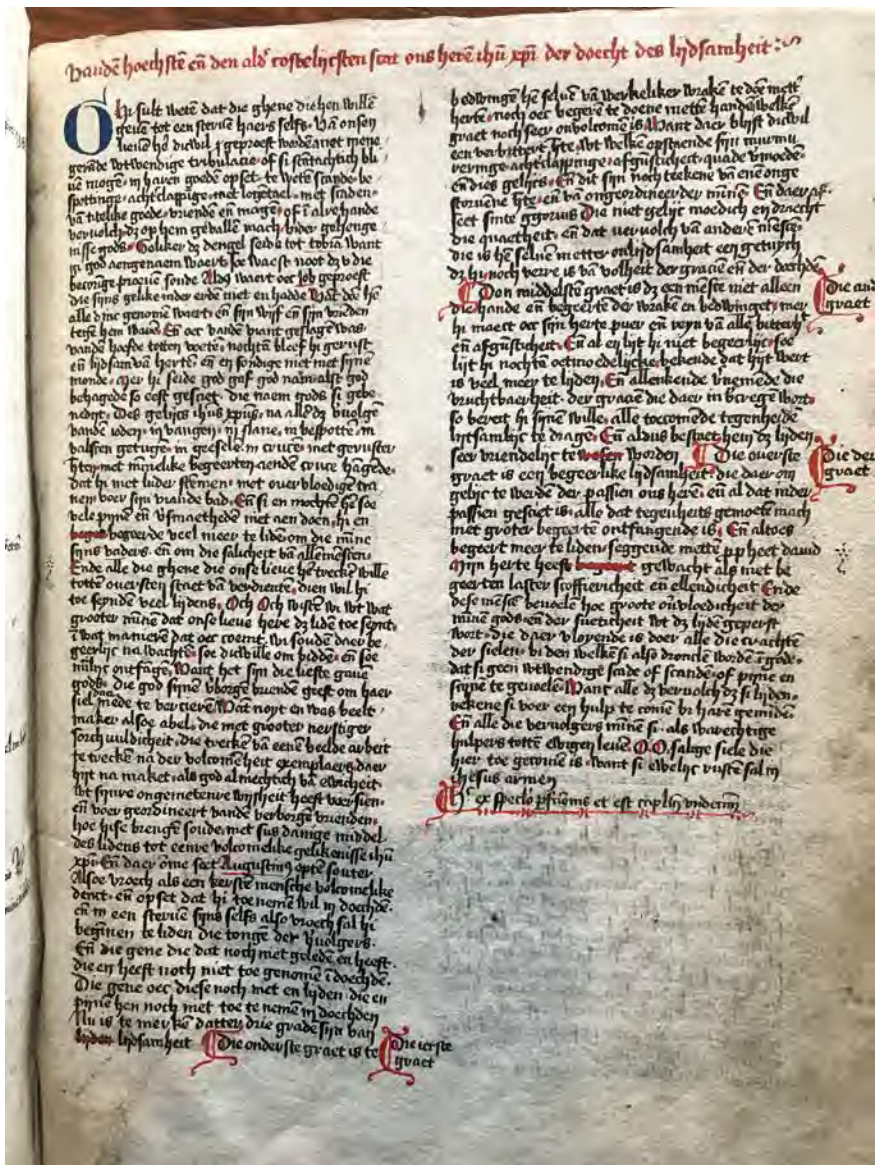 Vandē hoechstē en̄ den ald' costelijcsten scat ons herē ihū xpī der doecht des lijdsamheit:
Ghi sult wetē dat die ghene die hen willē
geuen tot een steruē haers selfs. Vā onsen
lieuen hē
nisse gods. Gelijker dz dengel seide tot tobia want
hi god aengenaem waert, soe waest noot dz v die
becoringe proeuen soude Aldꝰ waert oec Job geproeft
die sijns gelike inder erdē niet en hadde Wāt doē hē
alle dinc genomē waert. en̄ sijn wijf en̄ sijn vriēden
En̄ oec vandē viant geslagē was
vandē hoefde totten voetē. nochtā bleef hi gerust
en̄ lijdsam vā hertē. en̄ en sondige niet met sijnē
monde. Mer hi seide god gaf god nam alst god
behagede so eest gesciet. die naem gods si gebe
nedijt. Des gelijcs ihꝰs xpūs. na alle dz vuolge
vandē iodē. in vangen. in slane. in bespottē. in
valscen getuge. in geeselē. in crucē. met geruster
hten met minlike begeertē aendē cruce hāgede.
dat hi met luder stēmen. met ouervloedige tra
nen voer sijn viande bad. En̄ si en mochtē hē soe
vele pijnē en̄ vsmaethedē niet aen doen. hi en
begeerde veel meer te lidē om die mīne
sijns vaders. en̄ om die salicheit vā allē mēscē.
Ende alle die ghene die onse lieue hē treckē wille
tottē ouersten staet vā verdientē. dien wil hi
toe seyndē veel lijdens. Och Och wistē wi wt wat
grooter mīnen dat onse lieue here dz lidē toe seynt.
ī wat manierē dat oec coemt. wi soudē daer be
geerlijc na wachtē. soe diwille om biddē. en̄ soe
mīlijc ontfāgē. Want het sijn die liefste gauē
gods. die god sijnē vborgē vriende geeft om haer
siel daer mede te vercierē. Wat noyt en was beelt
maker alsoe abel. die met grooter nerstiger
sorchuuldicheit. die treckē vā eenē beelde arbeit
te treckē na der volcomēheit exemplaers daer
hijt na maket. als god almechtich vā ewicheit
wt sijnre ongemetenre wijsheit heeft voersien.
en̄ voer geordineert vandē verborgē vriendē.
hoe hise brengē soude. met sus danige middel
des lidens tot eenre volcomelike gelikenisse ihū
xpī En̄ daer ōme seet Augustinꝰ optē souter
Alsoe vroech als een kerstē mensche volcomelike
denct. en̄ opset dat hi toe nemē wil in doechdē.
en̄ in een steruē sijns selfs also vroech sal hi
begīnen te liden die tongē der vuolgers.
En̄ die gene die dat noch niet geledē en heeft.
die en heeft noch niet toe genomē ī doechdē.
Die gene oec diese noch niet en lijden. die en
pijnē hen noch niet toe te nemē in doechden
Nu is te merkē datter drie gradē sijn van
lijdsamheit Die onderste graet is te
Die ierste
graet
bedwingē hē seluē vā werkeliker wrakē te doē mett'
hertē. noch oec begerē te doene mettē handē welken
graet noch seer onvolcomē is. Want daer blijft diwil
een verbittert hte. wt welke opstaende sijn murmu
reringe. achterclappinge. afgūsticheit. quade vmoedē.
en̄ dies gelijcs. En̄ dit sijn noch teekenē vā ene onge
storuene hte. en̄ vā ongeordineerder mīnē. En̄ daer af
seet sinte ggorius Die niet gelijc moedich en draecht
die quaetheit. en̄ dat veruolch vā anderē mēscē.
die is hē seluen metter onlijdsamheit een getuych
dz hi noch verre is vā volheit der graciē en̄ der doechdē
Don middelsten graet is dz een mēsce niet alleen
die hande en̄ begeerte der wrakē en bedwinget. mer
hi maect oec sijn herte puer en̄ reyn vā alle bitterh't
en̄ afgūsticheit. En̄ al en lijt hi niet begeerlijc. soe
lijt hi nochtā oetmoedelijcke. bekende dat hijt wert
is veel meer te lijden. En̄ allenkende vnemende die
vruchtbaerheit. der graciē die daer in vcregē wort.
so bereit hi sijnē wille. alle toecomēde tegenhedē
lijtsamlijc te dragē. En̄ aldus bestaet hem dz lijden
seer vriendelijc te worden Die ouerste
graet is een begeerlike lijdsamheit. die daer om
gelijc te werdē der passien ons herē. en̄ al dat inder
passien gesciet is. alle dat tegenheits gemoetē mach
met groter begeerte ontfangende is. En̄ altoes
begeert meer te liden seggende mettē pphete dauid
Mijn herte heeft gewacht als met be
geerten laster scoffiericheit en̄ ellendicheit Ende
dese mēscē beuoelē hoe groote ouvloedicheit der
mīnē gods. en̄ der sueticheit wt dz lijdē geperst
wort. die daer vloyende is doer alle die crachtē
der sielen. bi den welkē si also droncken wordē ī gode.
dat si geen wtwendige scade of scande. of pijne en
scijne te geuoelē. Want alle dz veruolch dz si lijden.
rekenē si voer een hulp te comē bi harē gemīdē.
En̄ alle die veruolgers mīnē si. als warechtige
hulpers tottē ewigen leuē. O. O. salige siele die
hier toe gecomē is. want si ewelijc rusten sal in
ihesus armen
Die and
graet
Die der
graet